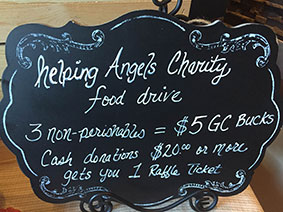 helping Angels Charity
food drive
3 non-perishables = $5 GC Bucks
Cash donations $20.00 or more
gets you 1 Raffle Ticket